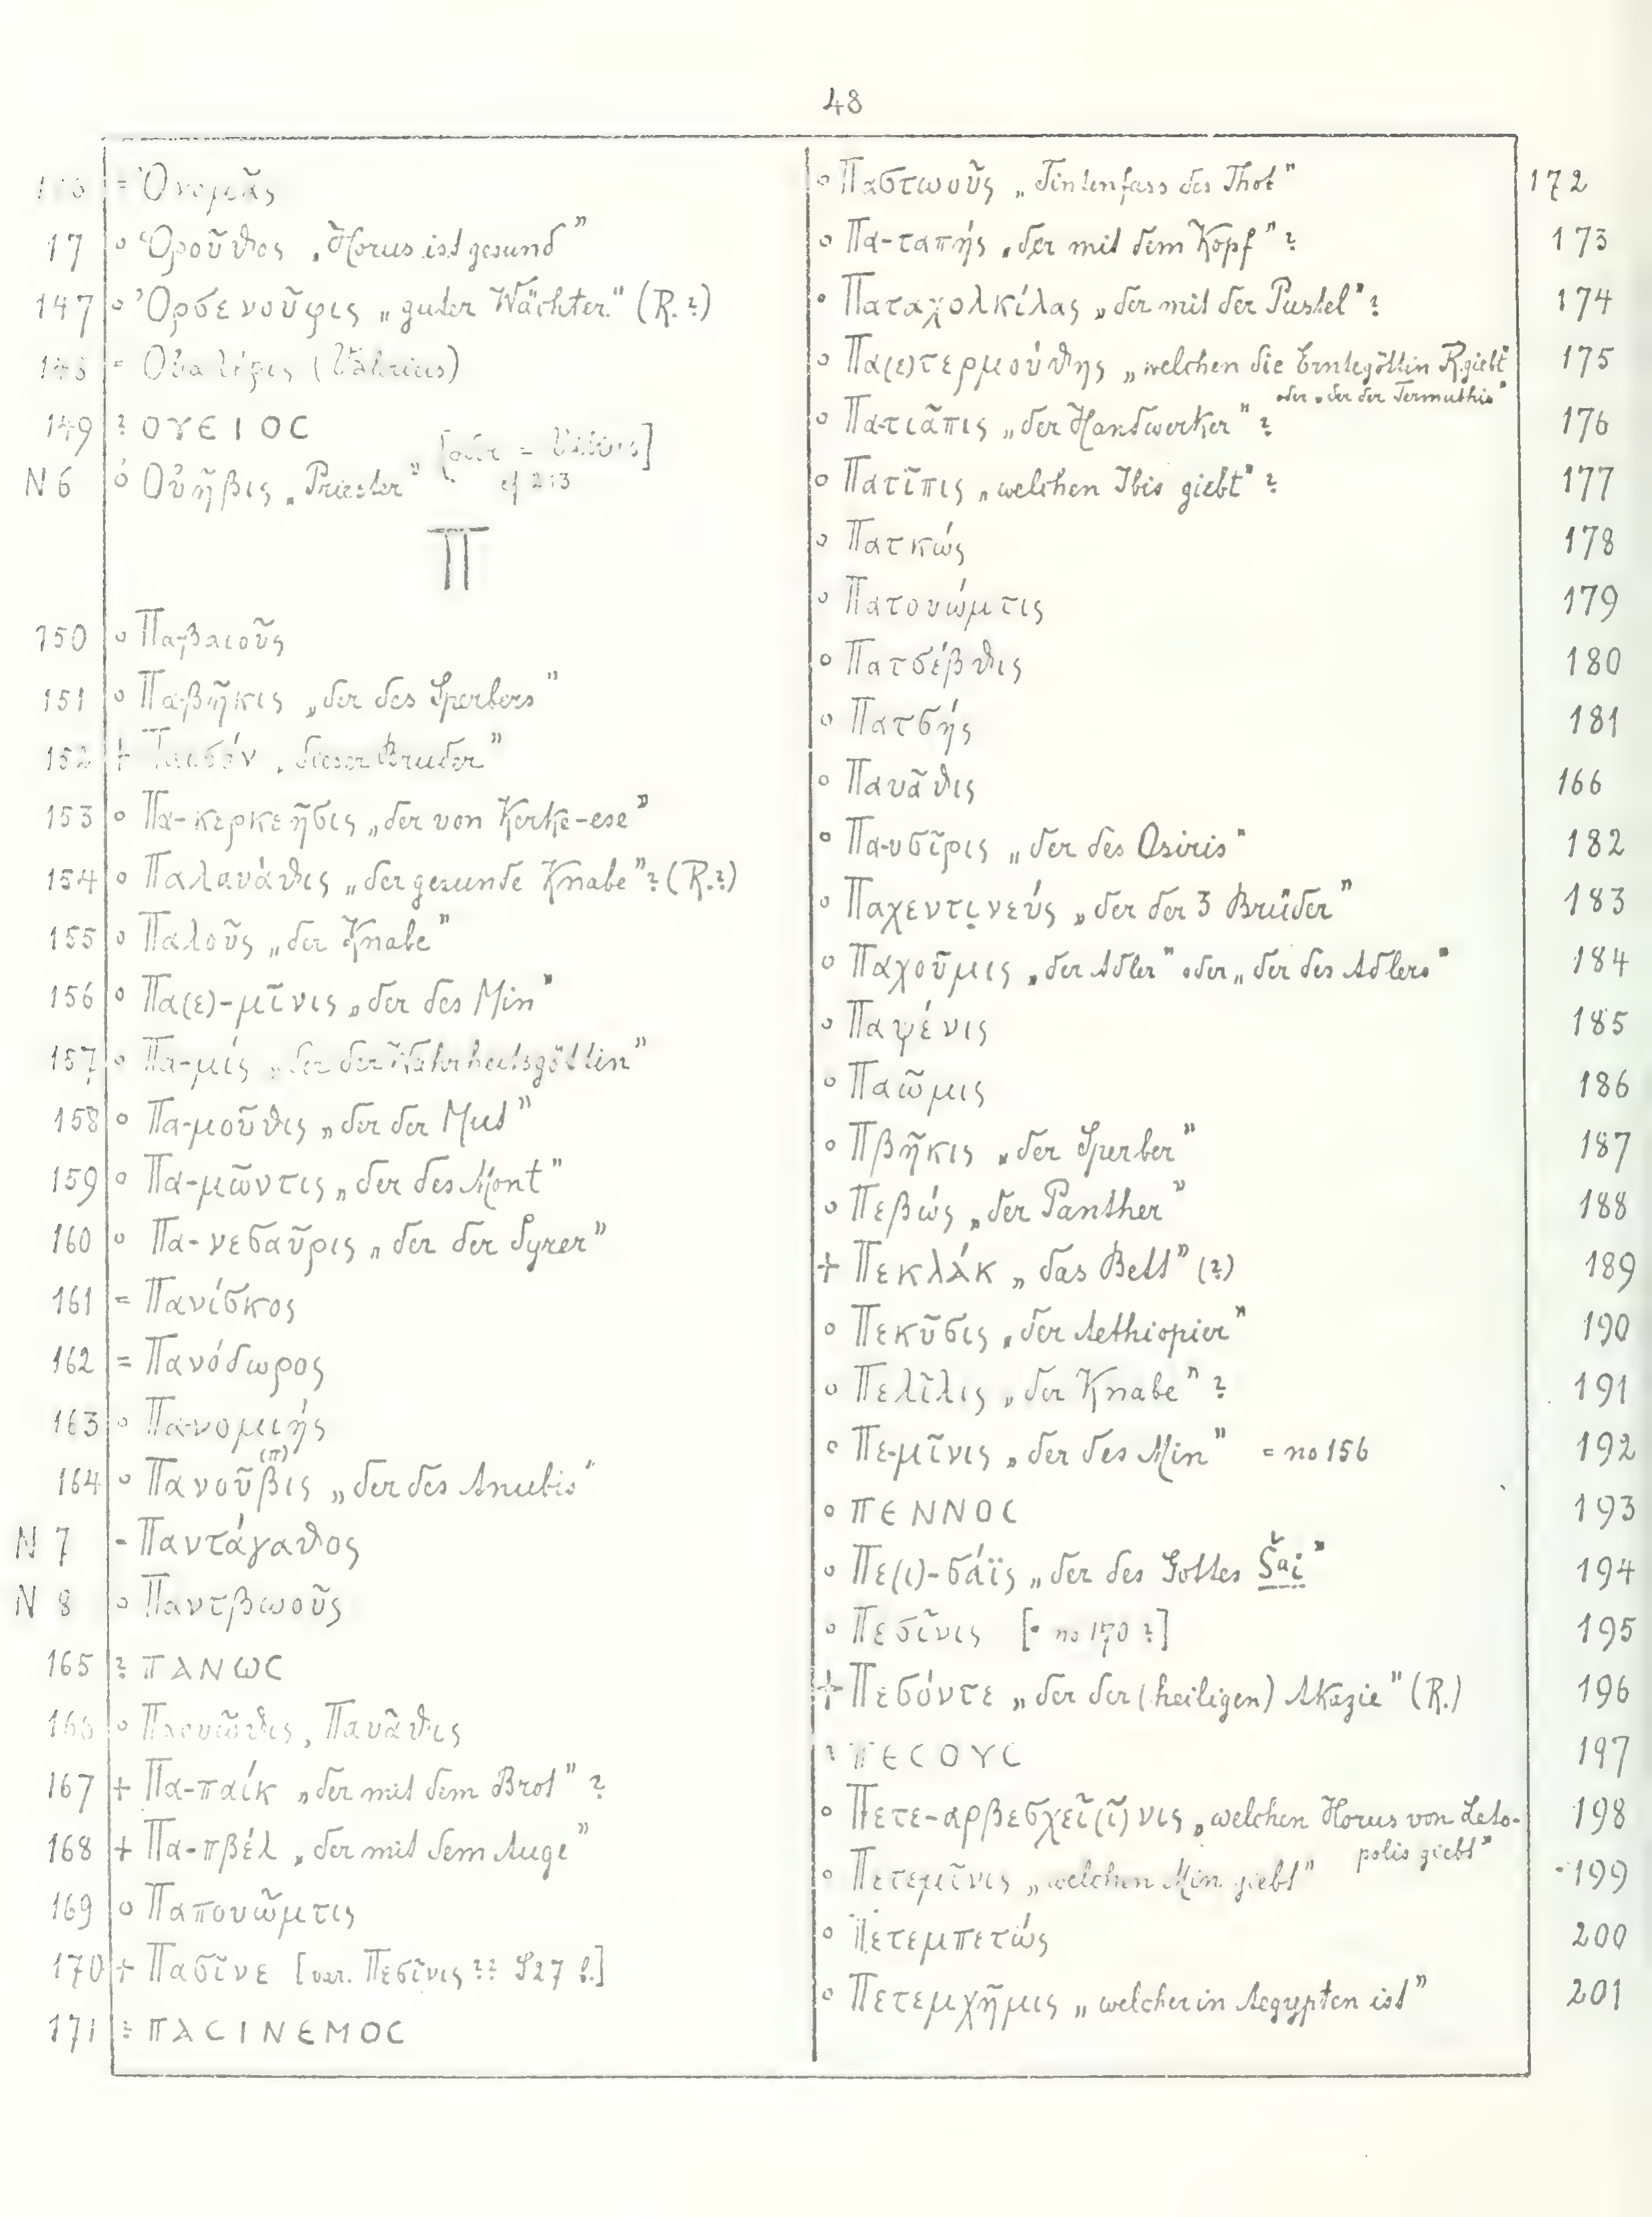 48
= Ὀνομᾶς
17 o Ὁροῦθος „Horus ist gesund”
147 o Ὀρσενοῦφις „guter Wächter” (R.?)
= Οὐαλέρις (Valerius)
149 ? ΟΥΕΙΟC
N 6 o Οὐῆβις „Priester”
Π
150 o Πα-βαιοῦς
151 o Πα-βῆκις „der des Sperbers”
152 + „dieser Bruder”
153 o Πα-κερκεῆσις „der von Kerke-ese”
154 o Παλανάθις „der gesunde Knabe”? (R.?)
155 o Παλοῦς „der Knabe”
156 o Πα(ε)-μῖνις „der des Min”
157 o Πα-μις „der der Wahrheitsgöttin”
158 o Πα-μοῦθις „der der Mut”
159 o Πα-μῶντις „der des Mont”
160 o Πα-νεσαῦρις „der der Syrer”
161 = Πανίσκος
162 = Πανόδωρος
163 o Πα-νομιής
164 o Πανοῦβ(π)ις „der des Anubis”
N 7 - Παντάγαθος
N 8 o Παντβωοῦς
165 ? ΠΑΝωC
166 o Παυᾶθις
167 + Πα-παίκ „der mit dem Brot” ?
168 + Πα-πβέλ „der mit dem Auge”
169 o Παπουῶμτις
170 + Πασῖνε [var. Πεσῖνις ?? S27 f.]
171 ΠΑCΙΝΕΜΟC
o Παστωοῦς „Tintenfass des Thot” 172
o Πα-ταπής „der mit dem Kopf” ? 173
o Παταχολκίλας „der mit der Pustel” ? 174
o Πα(ε)τερμούθης „welchen die Erntegöttin R. giebt” 175
oder „der der Termuthis”
o Πα-τιᾶπις „der Handwerker” ? 176
o Πατῖπις „welchen Ibis giebt” ? 177
o Πατκώς 178
o Πατουώμτις 179
o Πατσέβθις 180
o Πατσής 181
o Παυᾶθις 166
o Πα-υσῖρις „der des Osiris” 182
o Παχεντινεύς „der der 3 Brüder” 183
o Παχοῦμις „der Adler” oder „der des Adlers” 184
o Παψένις 185
o Παῶμις 186
o Πβῆκις „der Sperber” 187
o Πεβώς „der Panther” 188
+ Πεκλάκ „das Bett” (?) 189
o Πεκῦσις „der Aethiopier” 190
o Πελῖλις „der Knabe” ? 191
o Πε-μῖνις „der des Min” = no 156 192
o ΠΕΝΝΟC 193
o Πε(ι)-σάϊς „der des Gottes Šai” 194
o Πεσῖνις [= no 170 ?] 195
+ Πεσόντε „der der (heiligen) Akazie” (R.) 196
? ΠΕCΟΥC 197
o Πετε-αρβεσχεῖ(ῖ)νις „welchen Horus von Leto- 198
polis giebt”
o Πετεμῖνις „welchen Min giebt” 199
o Πετεμπετώς 200
o Πετεμχῆμις „welcher in Aegypten ist” 201